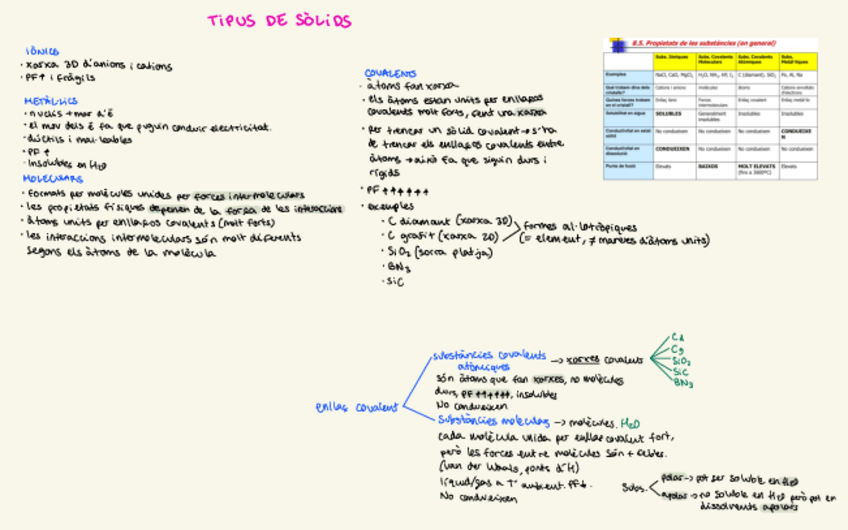 TIPUS DE SÒLIDS
IÒNICS
· xarxa 3D d'anions i cations
· PF↑ i fràgils
METÀL·LICS
· nuclis + mar d'ē
· el mov dels ē fa que puguin conduir electricitat.
· dúctils i mal·leables
· PF ↑
· Insolubles en H2O
MOLECULARS
· formats per molècules unides per forces intermoleculars
· les propietats físiques depenen de la força de les interaccions
· àtoms units per enllaços covalents (molt forts)
· les interaccions intermoleculars són molt diferents
segons els àtoms de la molècula
COVALENTS
· àtoms fan xarxa
· els àtoms estan units per enllaços
covalents molt forts, fent una xarxa
· per trencar un sòlid covalent → s'ha
de trencar els enllaços covalents entre
àtoms → això fa que siguin durs i
rígids
· PF ↑↑↑↑↑↑
· exemples
· C diamant (xarxa 3D)
· C grafit (xarxa 2D)
formes al·lotròpiques
(= element, ≠ maneres d'àtoms units)
· SiO2 (sorra platja)
· BN3
· SiC
8.5. Propietats de les substàncies (en general)
Subs. Iòniques Subs. Covalents Moleculars Subs. Covalents Atòmiques Subs. Metàl·liques
Exemples NaCl, CaO, MgCl2 H2O, NH3, C (diamant), SiO2 Fe, Al, Na
Què trobem dins dels cristalls? Cations i anions molècules àtoms
Quines forces trobem en el cristall? Enllaç iònic Forces intermoleculars Enllaç covalent Enllaç metàl·lic
Solubilitat en aigua SOLUBLES Generalment insolubles Insolubles Insolubles
Conductivitat en estat sòlid No condueixen No condueixen No condueixen CONDUEIXEN
Conductivitat en dissolució CONDUEIXEN No condueixen No condueixen No condueixen
Punts de fusió Elevats BAIXOS MOLT ELEVATS (fins a 3600ºC) Elevats
enllaç covalent
substàncies covalents
atòmiques
→ xarxes covalents
Cd
Cg
SiO2
SiC
BN3
són àtoms que fan xarxes, no molècules
durs, PF ↑↑↑↑↑↑, insolubles
No condueixen
Substàncies moleculars → molècules. H2O
cada molècula unida per enllaç covalent fort,
però les forces entre molècules són + febles.
(Van der Waals, ponts d'H)
líquid/gas a Tª ambient. PF↓.
No condueixen
Subs.
polar → pot ser soluble en H2O
apolar → no soluble en H2O però pot en
dissolvents apolars